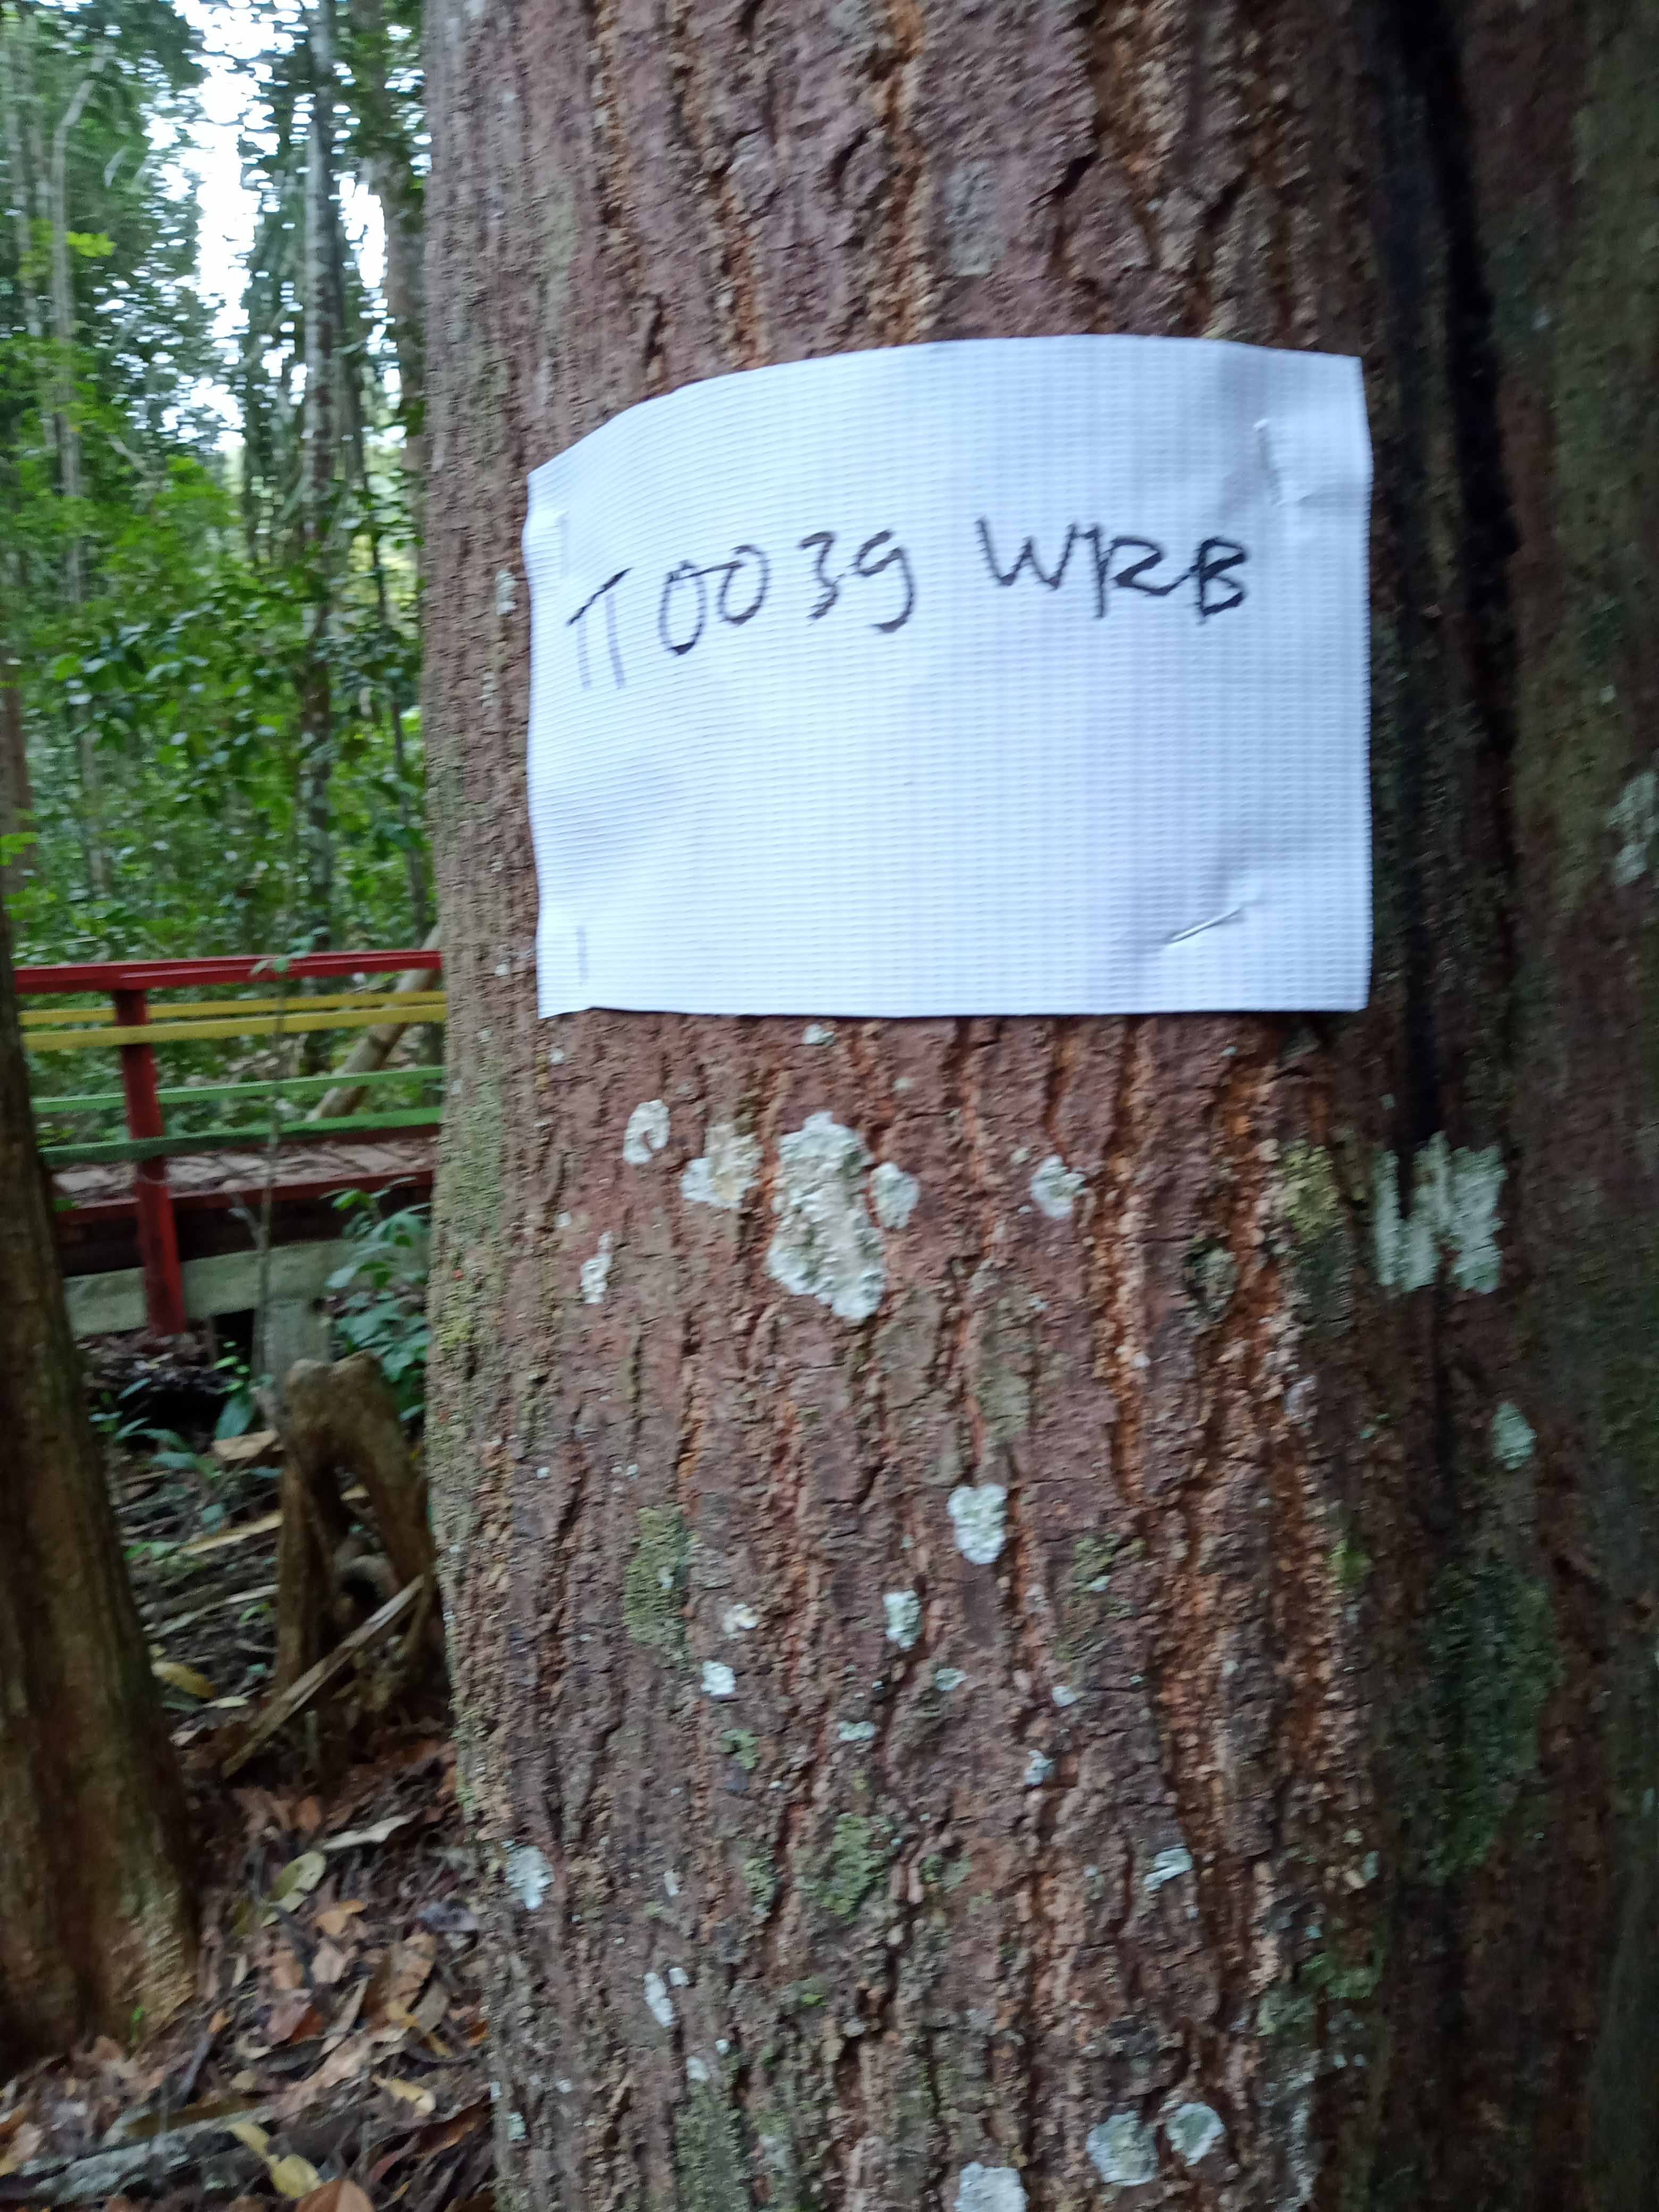 T0039 WRB